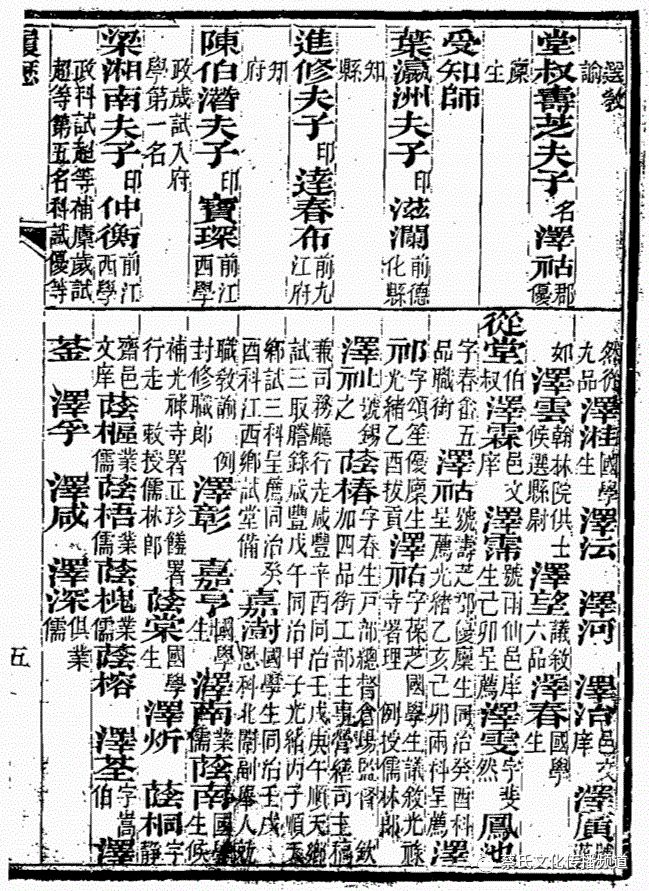 選教諭
堂叔壽芝夫子 名澤祜郡優廩生
受知師
葉瀛洲夫子 印滋瀾 前德化縣知縣
進修夫子 印達春布 前九江府知府
陳伯潛夫子 印寶琛 前江西學政歲試入府學第一名
梁湘南夫子 印仲衡 前江西學政科試超等補廩歲試超等第五名科試優等
然從九品 國學生 澤沄 澤河 澤治邑文庠
如 澤雲翰林院供士候選縣尉 澤望議敘六品 澤春國學生
從堂伯叔 澤霖邑文庠 澤霈號雨仙邑庠生己卯呈薦 澤雯字斐然 鳳池
字春畬五品職銜 澤祜號壽芝郡優廩生同治癸酉科呈薦光緒乙亥己卯兩科呈薦 澤
祁字頌笙優廩生光緒乙酉拔貢 澤祐字葆芝國學生議敘光祿寺署理 例授儒林郎
澤祉號錫之 蔭椿字春生戶部總督倉場監督 欽加四品銜工部主事營繕司主稿
兼司務廳行走咸豐辛酉同治壬戌庚午順天鄉試三取謄錄咸豐戊午同治甲子光緒丙子順天
鄉試三科呈薦同治癸酉科江西鄉試堂備 嘉澍國學生同治壬戌恩科北闈副舉人就
職教諭 例封修職郎 澤彰 嘉亨國學生 澤南業儒 蔭南國學生候
補光祿寺署正珍饈署行走 敕授儒林郎 蔭棠國學生 澤炘 蔭桐字靜
齋邑文庠 蔭樞業儒 蔭梧業儒 蔭槐業儒 蔭榕 澤荃字嵩伯 澤
澤孚 澤咸 澤深俱業儒
履歷
五
蔡氏文化传播频道